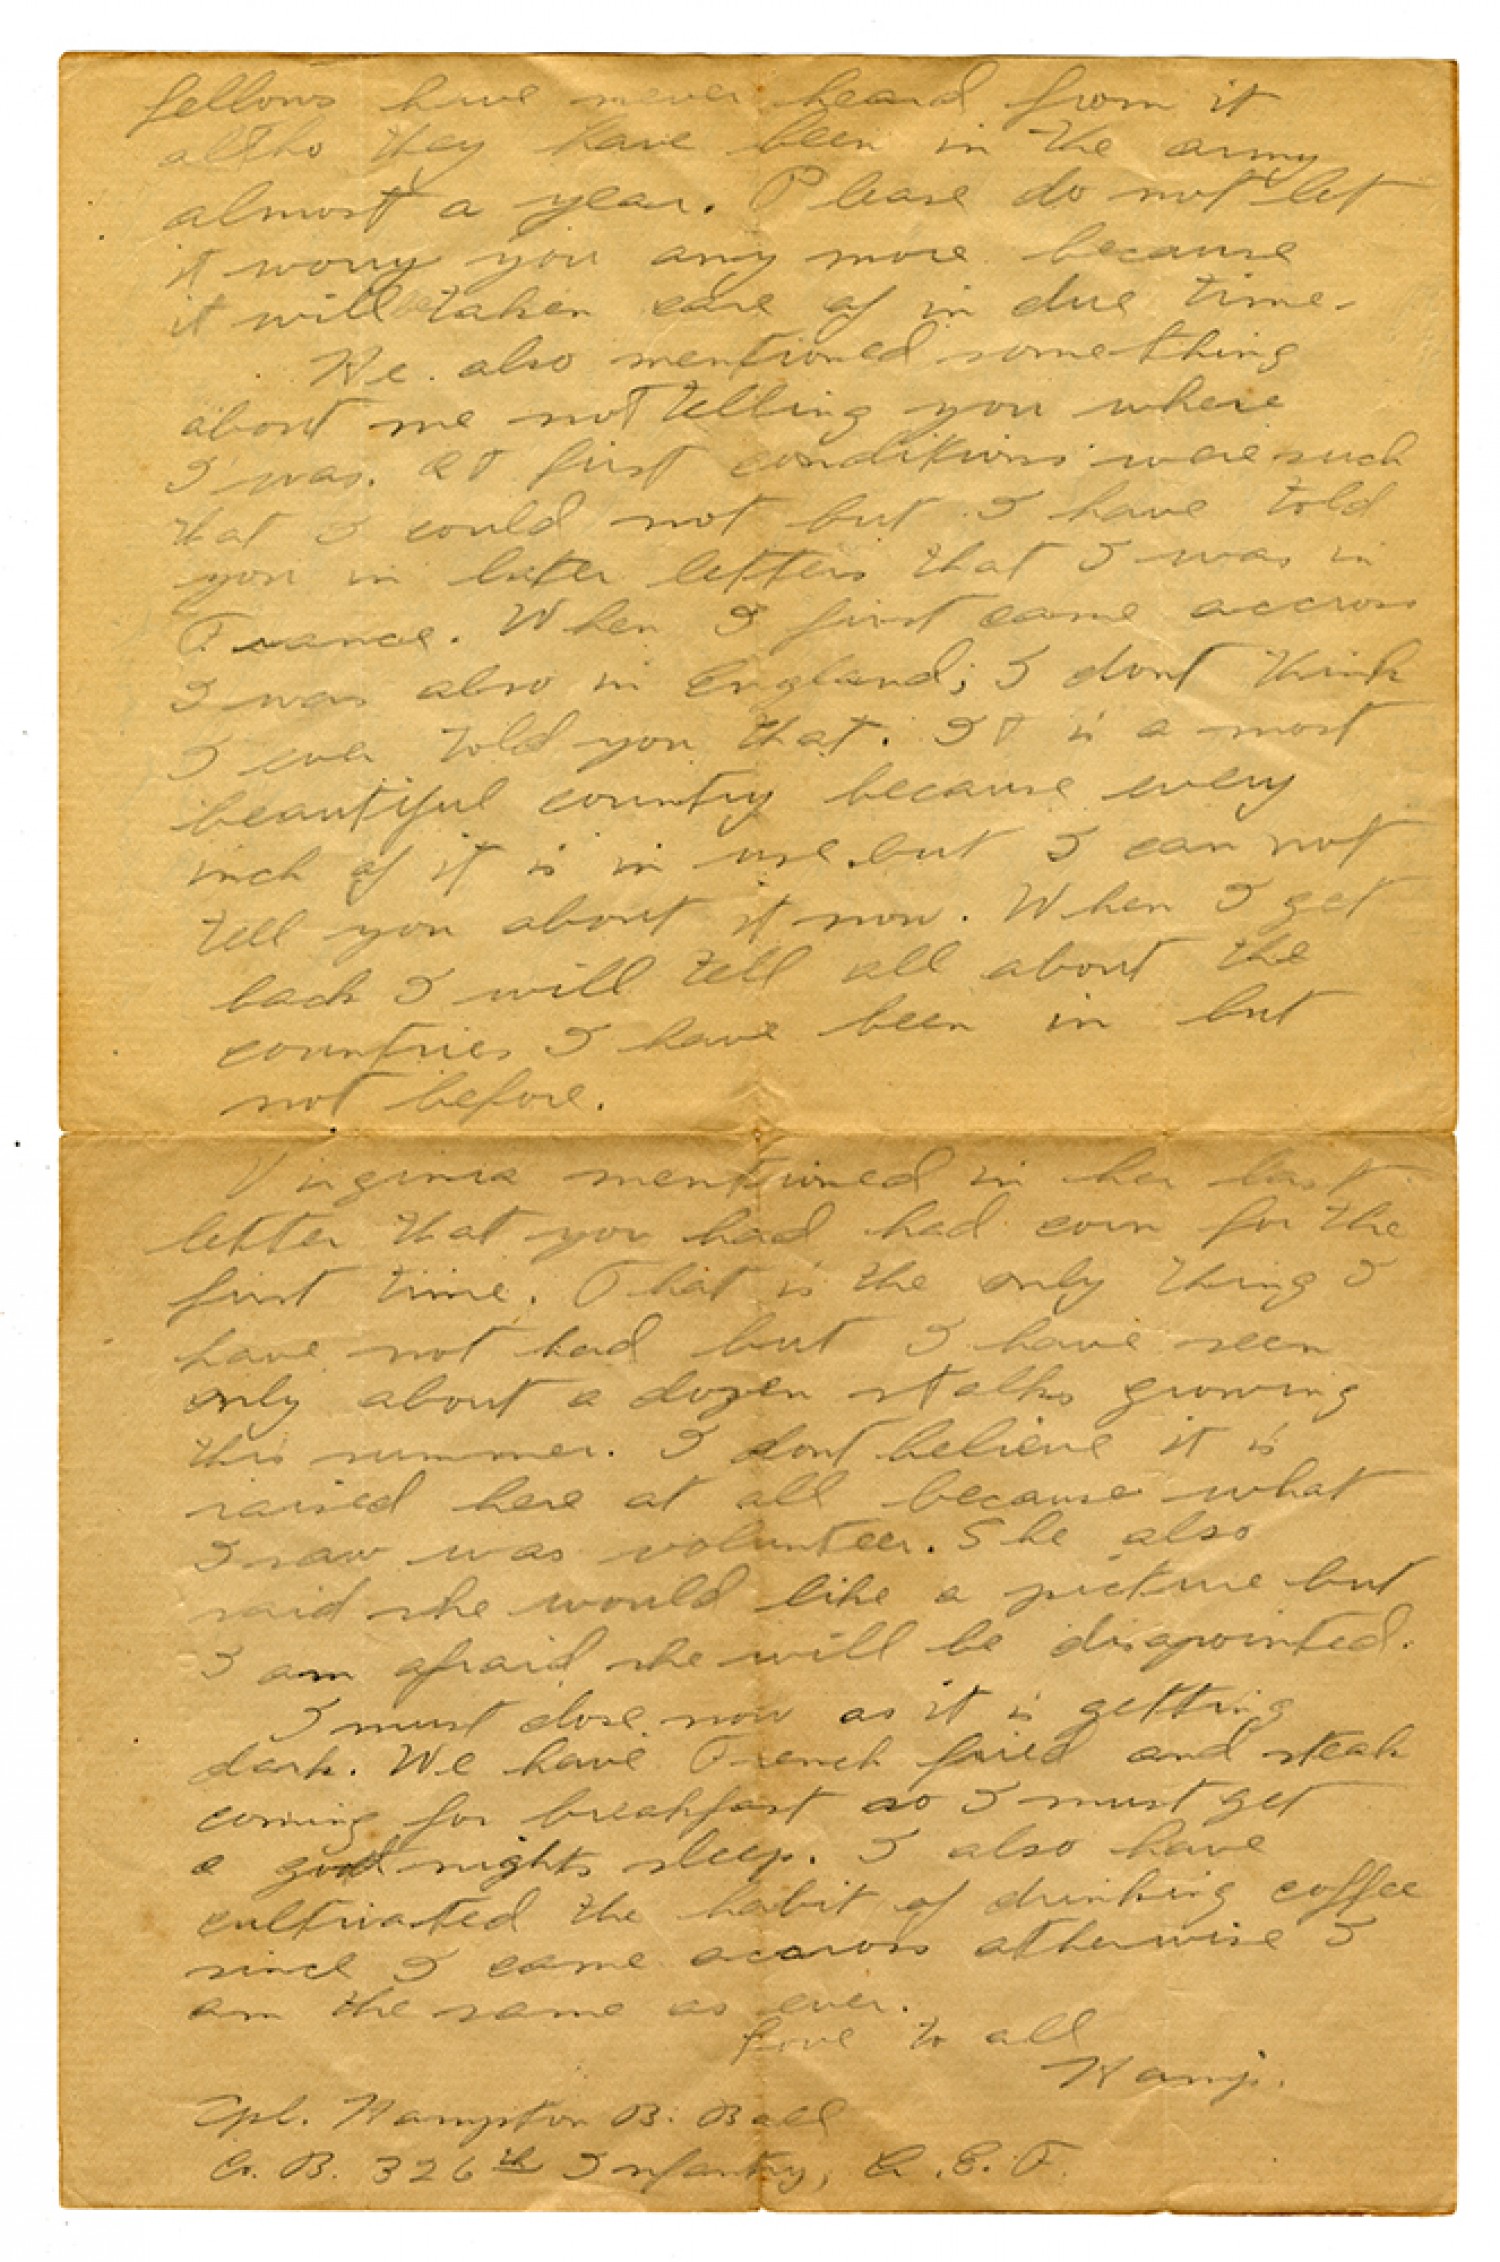 fellows have never heard from it
altho they have been in the army
almost a year. Please do not let
it worry you any more because
it will be taken care of in due time.
He also mentioned something
about me not telling you where
I was. At first conditions were such
that I could not but I have told
you in later letters that I was in
France. When I first came accross
I was also in England; I dont think
I ever told you that. It is a most
beautiful country because every
inch of it is in use but I can not
tell you about it now. When I get
back I will tell all about the
countries I have been in but
not before.
Virginia mentioned in her last
letter that you had had corn for the
first time. That is the only thing I
have not had but I have seen
only about a dozen stalks growing
this summer. I dont believe it is
raised here at all because what
I saw was volunteer. She also
said she would like a picture but
I am afraid she will be disapointed.
I must close now as it is getting
dark. We have French fried and steak
coming for breakfast so I must get
a good nights sleep. I also have
cultivated the habit of drinking coffee
since I came accross otherwise I
am the same as ever.
Love to all
Hamp.
Cpl. Hampton B. Ball
Co. B. 326th Infantry, A.E.F.